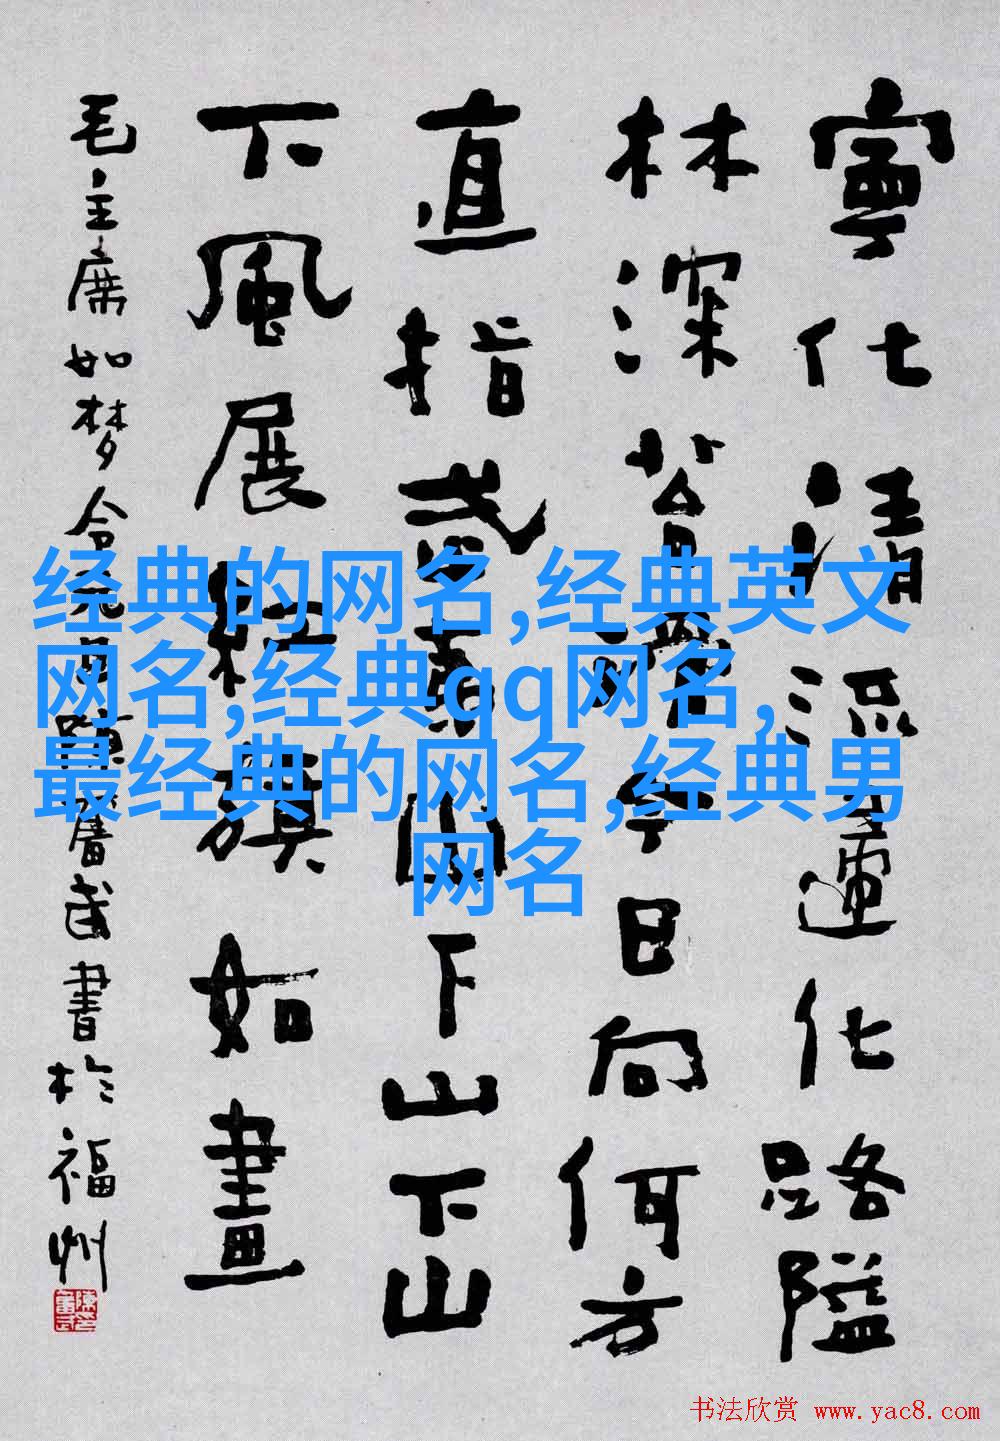 寧化清流運化路隘
林深苔滑今日向何方
直指武夷山下山下山
下風展紅旗如畫
毛主席如梦令元旦陳奮武書於福州
经典的网名,经典英文
网名,经典qq网名,
最经典的网名,经典男
网名
书法欣赏 www.yac8.com